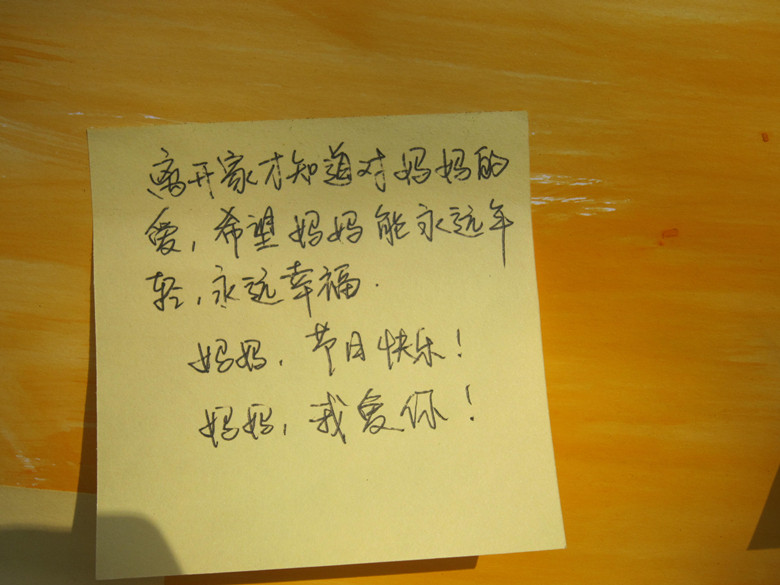 离开家才知道对妈妈的
爱,希望妈妈能永远年
轻,永远幸福.
妈妈,节日快乐!
妈妈,我爱你!